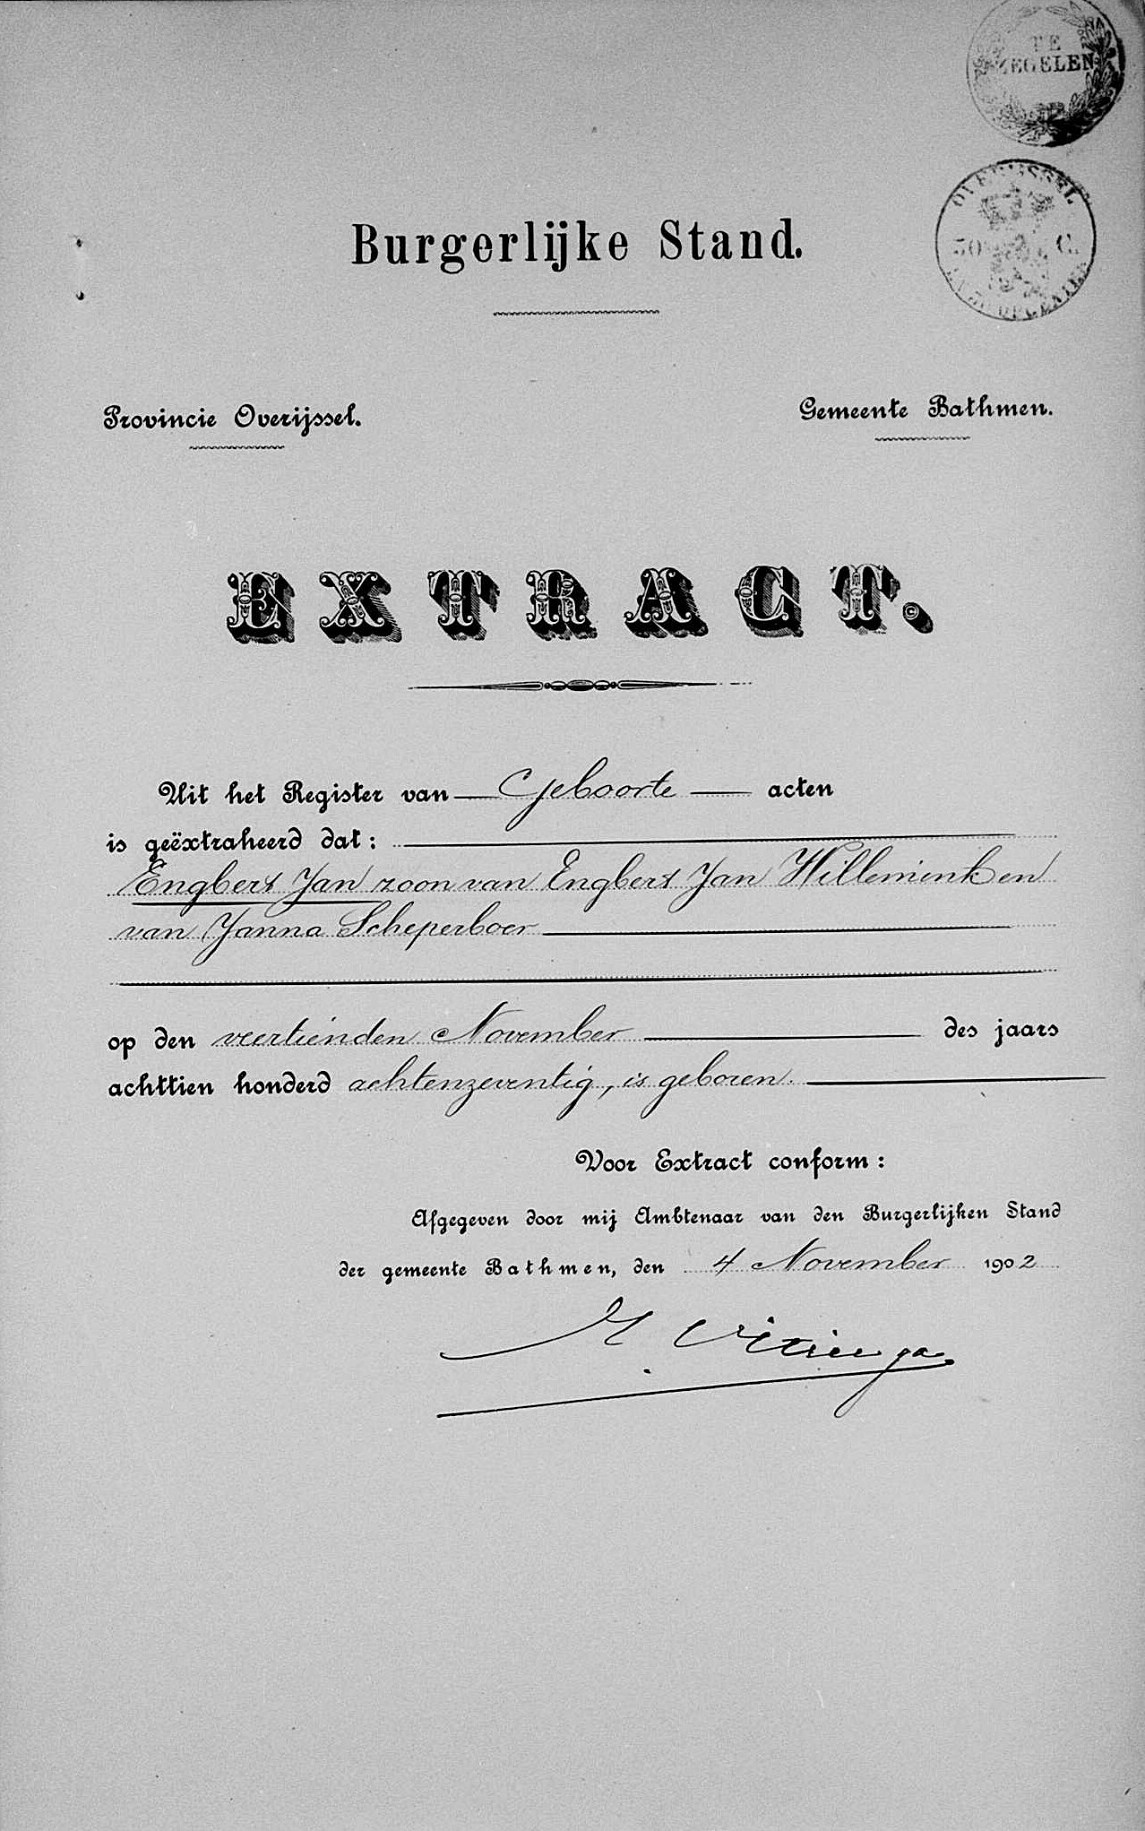 TE
ZEGELEN
OVERIJSSEL
50 C.
Burgerlijke Stand.
Provincie Overijssel.
Gemeente Bathmen.
EXTRACT.
Uit het Register van Geboorte acten
is geëxtraheerd dat:
Engbert Jan zoon van Engbert Jan Willemink en
van Janna Scheperboer
op den veertienden November des jaars
achttien honderd achtenzeventig, is geboren.
Voor Extract conform:
Afgegeven door mij Ambtenaar van den Burgerlijken Stand
der gemeente Bathmen, den 4 November 1902
Vitringa